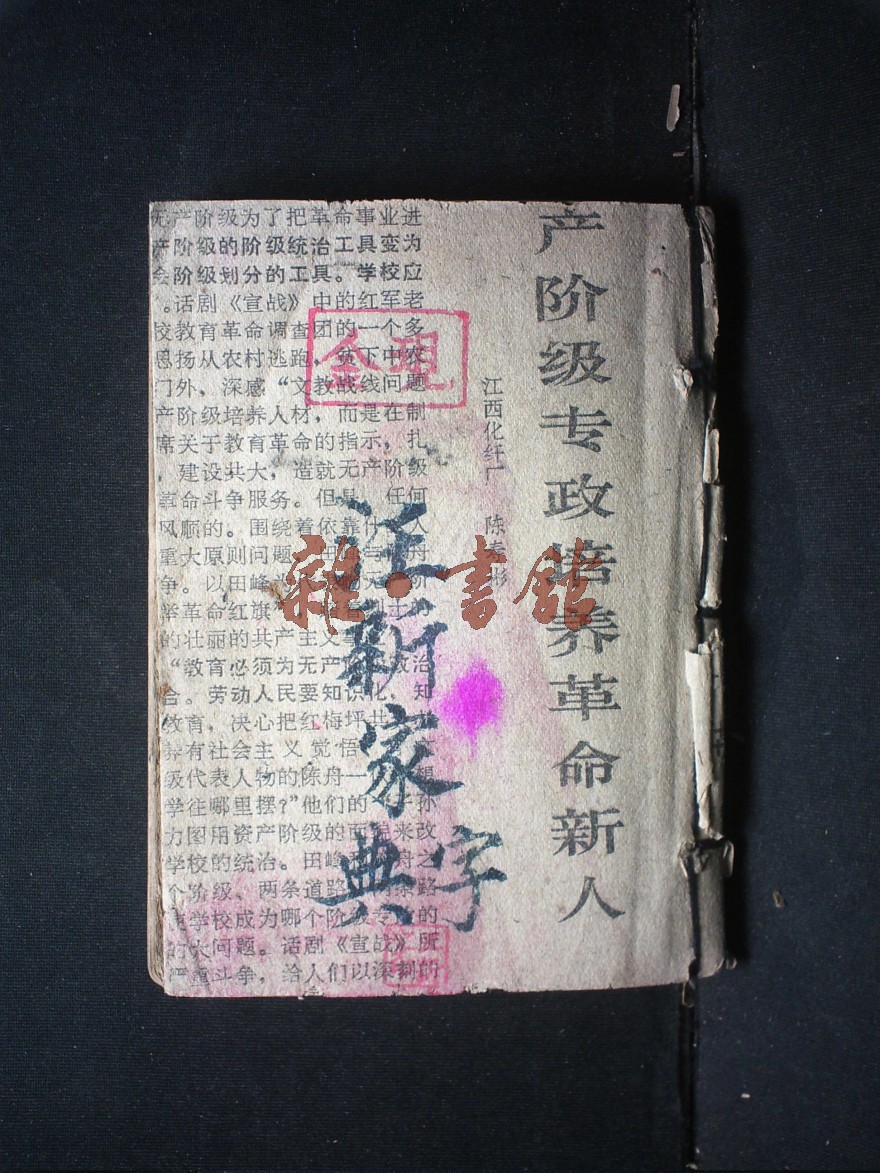 产阶级专政培养革命新人
江西化纤厂 陈
无产阶级为了把革命事业进
产阶级的阶级统治工具变为
会阶级划分的工具。学校应
。话剧《宣战》中的红军老
校教育革命调查团的一个多
恩扬从农村逃跑，贫下中农
门外，深感“文教战线问题
产阶级培养人材，而是在制
席关于教育革命的指示，扎
，建设共大，造就无产阶级
革命斗争服务。但是，任何
风顺的。围绕着依靠什 人
重大原则问题
争。以田峰
举革命红旗”
的壮丽的共产主义
“教育必须为无产 政治
合。劳动人民要知识化，知
教育，决心把红梅坪共
养有社会主义觉悟
级代表人物的陈舟一
学往哪里摆？”他们的 子孙
力图用资产阶级的面貌来改
学校的统治。田峰 舟之
个阶级、两条道路 路
学校成为哪个阶级专 的
大问题。话剧《宣战》所
严重斗争，给人们以深刻的
江新家
典字
雜·書館